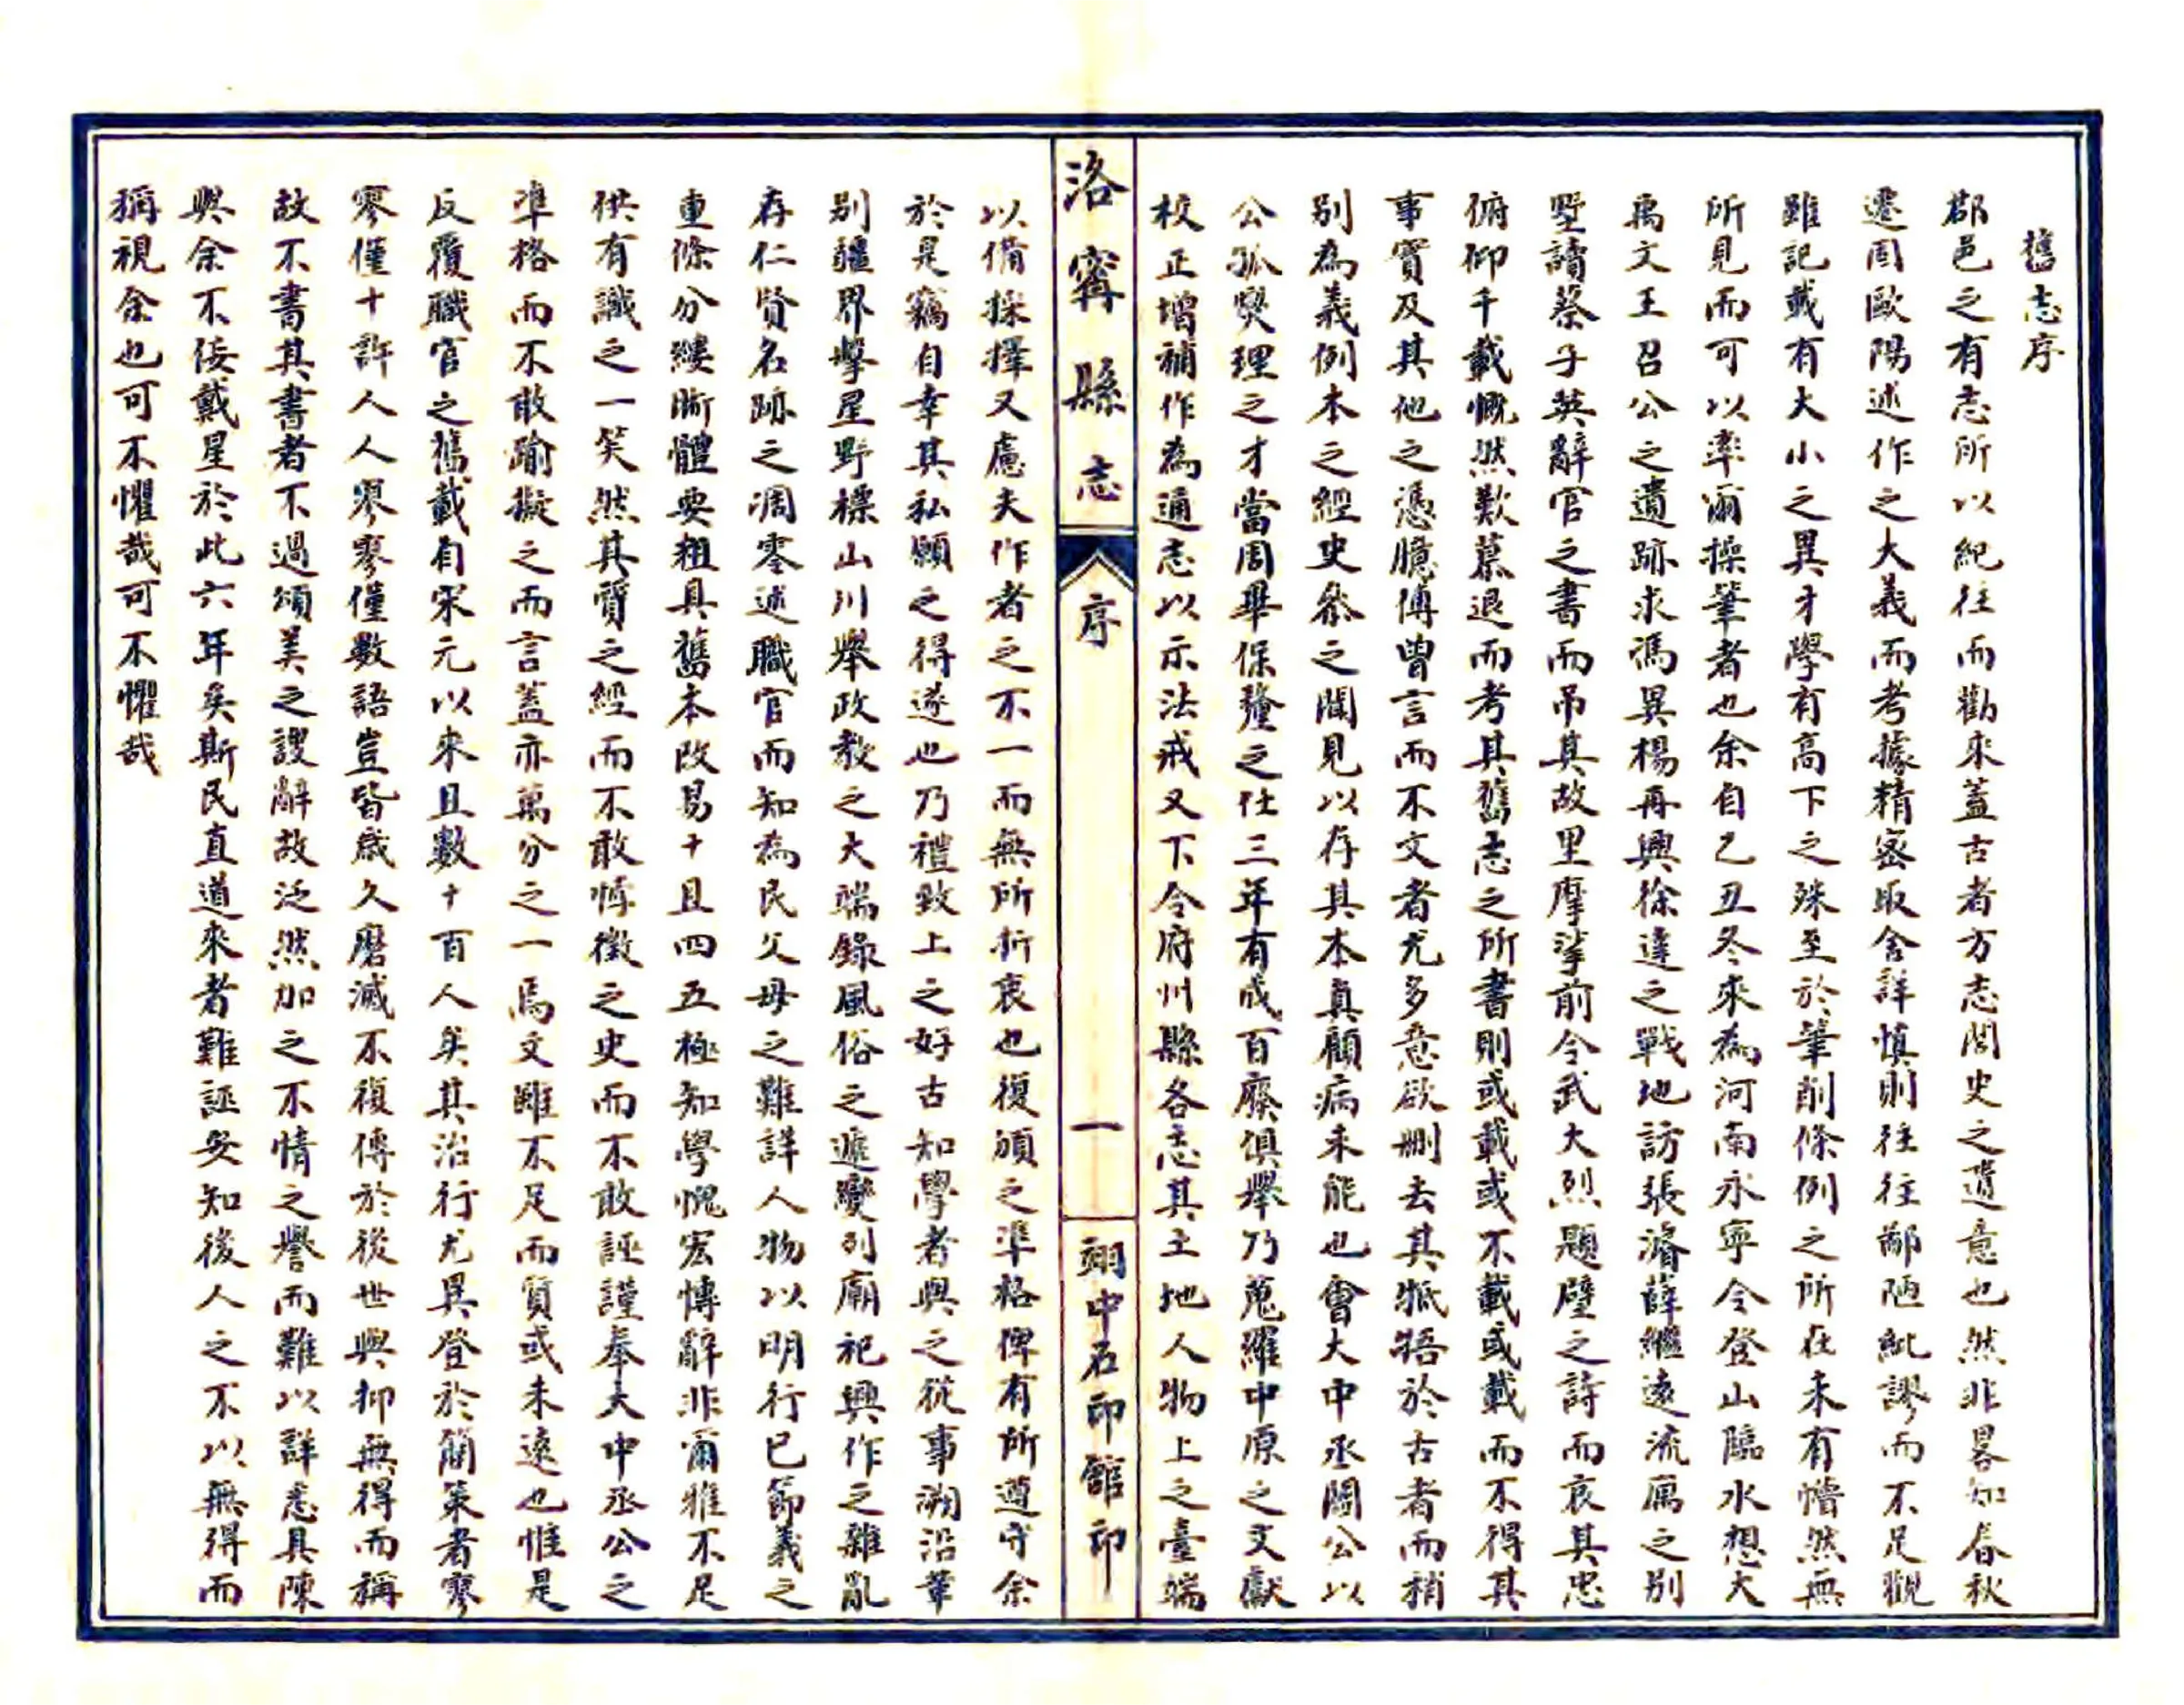 舊志序
郡邑之有志所以紀往而勸來蓋古者方志閭史之遺意也然非畧知春秋
遷固歐陽述作之大義而考據精密取舍詳慎則往往鄙陋紕謬而不足觀
雖記載有大小之異才學有高下之殊至於筆削條例之所在未有懵然無
所見而可以率爾操筆者也余自乙丑冬來為河南永寧令登山臨水想大
禹文王召公之遺跡求馮異楊再興徐達之戰地訪張濬薛繼遠流寓之別
墅讀蔡子英辭官之書而吊其故里摩挲前令武大烈題壁之詩而哀其忠
俯仰千載慨然歎慕退而考其舊志之所書則或載或不載或載而不得其
事實及其他之憑臆傅曾言而不文者尤多意欲刪去其牴牾於古者而稍
別為義例本之經史叅之聞見以存其本真顧病未能也會大中丞閻公以
公孤燮理之才當周畢保釐之任三年有成百廢俱舉乃蒐羅中原之文獻
校正增補作為通志以示法戒又下令府州縣各志其土地人物上之臺端
洛寧縣志
序
一
翊中石印館印
以備採擇又慮夫作者之不一而無所折衷也復頒之準格俾有所遵守余
於是竊自幸其私願之得遂也乃禮致上之好古知學者與之從事溯沿革
別疆界擊星野標山川舉政教之大端錄風俗之遞變列廟祀興作之雜亂
存仁賢名跡之凋零述職官而知為民父母之難詳人物以明行已節義之
重條分縷晰體要粗具舊本改易十且四五極知學愧宏博辭非爾雅不足
供有識之一笑然其質之經而不敢悖徵之史而不敢誣謹奉大中丞公之
準格而不敢踰擬之而言蓋亦萬分之一焉文雖不足而質或未遠也惟是
反覆職官之舊載自宋元以來且數十百人矣其治行尤異登於簡策者寥
寥僅十許人人寥寥僅數語豈皆歲久磨滅不復傳於後世與抑無得而稱
故不書其書者不過頌美之謏辭故泛然加之不情之譽而難以詳悉具陳
與余不佞戴星於此六年矣斯民直道來者難誣安知後人之不以無得而
稱視余也可不懼哉可不懼哉